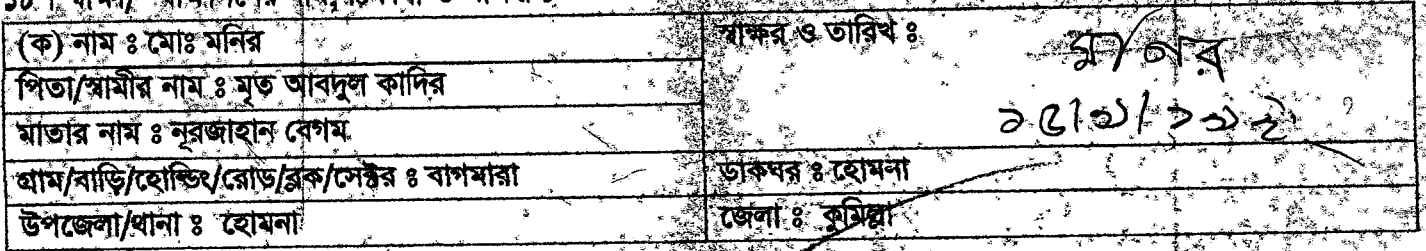 (ক) নাম ঃ মোঃ মনির
স্বাক্ষর ও তারিখ ঃ
মনির
পিতা/স্বামীর নাম ঃ মৃত আবদুল কাদির
মাতার নাম ঃ নূরজাহান বেগম
গ্রাম/বাড়ি/হোল্ডিং/রোড/ব্লক/সেক্টর ঃ বাগমারা
ডাকঘর ঃ হোমনা
উপজেলা/থানা ঃ হোমনা
জেলা ঃ কুমিল্লা